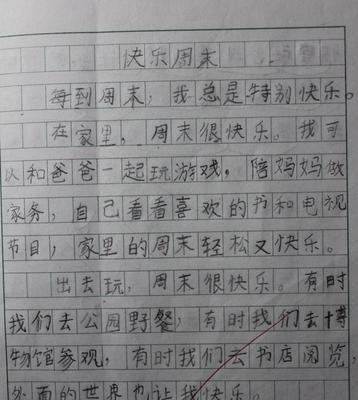 快乐周末
每到周末，我总是特别快乐。
在家里，周末很快乐。我可
以和爸爸一起玩游戏，陪妈妈做
家务，自己看看喜欢的书和电视
节目，家里的周末轻松又快乐。
出去玩，周末很快乐。有时
我们去公园野餐，有时我们去博
物馆参观，有时我们去书店阅览，
外面的世界也让我快乐。